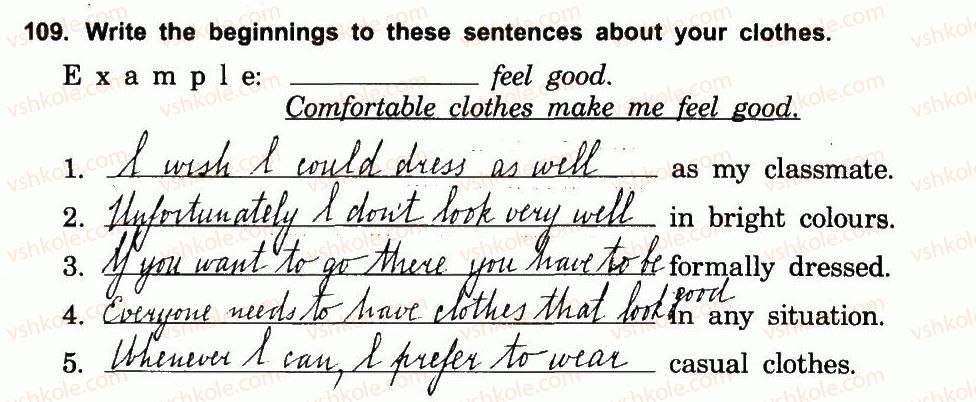 109. Write the beginnings to these sentences about your clothes.
E x a m p l e: ______________ feel good.
Comfortable clothes make me feel good.
1. I wish I could dress as well as my classmate.
2. Unfortunately I don't look very well in bright colours.
3. If you want to go there you have to be formally dressed.
4. Everyone needs to have clothes that look good in any situation.
5. Whenever I can, I prefer to wear casual clothes.